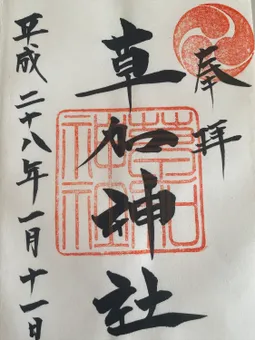 奉拝
草加神社
平成二十八年一月十一日
草加神社